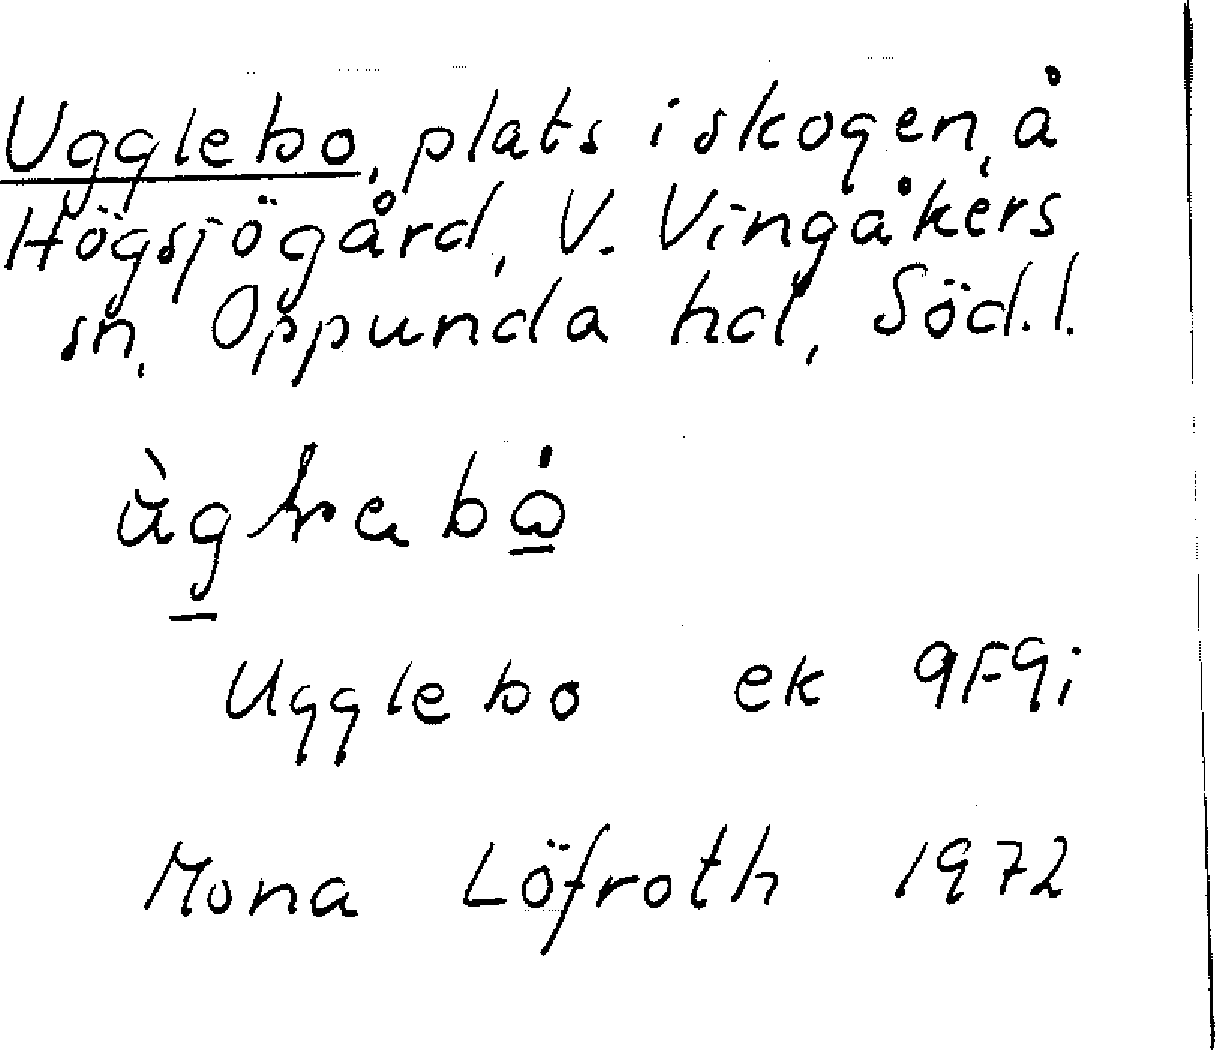 Ugglebo, plats i skogen, å
Högsjögård, V. Vingåkers
sn, Oppunda hd, Söd.l.
Ugglebo ek 9F9i
Mona Löfroth 1972